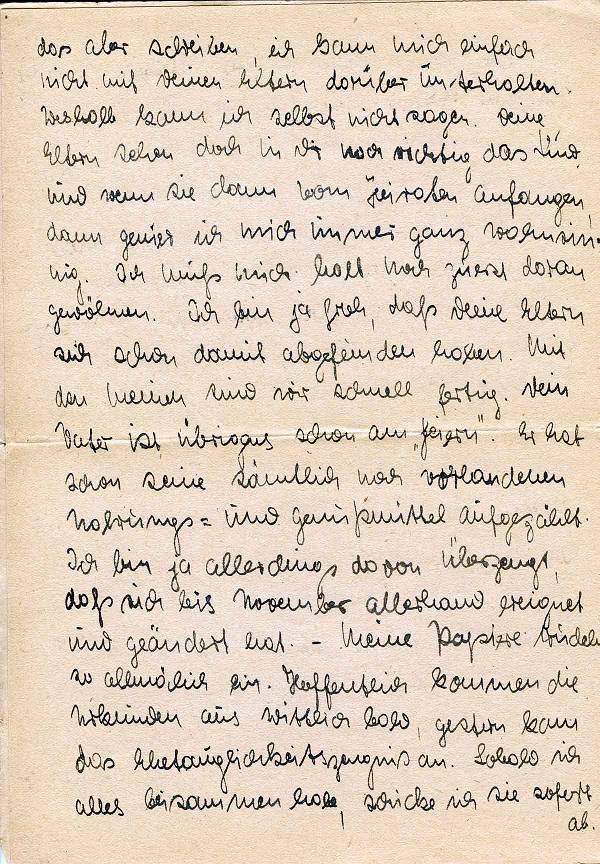 das aber schreiben, ich kann mich einfach
nicht mit deinen Eltern darüber unterhalten.
Weshalb kann ich selbst nicht sagen. Deine
Eltern sehen doch in dir noch richtig das Kind,
und wenn sie dann vom Heiraten anfangen,
dann genier ich mich immer ganz wahnsin-
nig. Ich muß mich halt noch zuerst daran
gewöhnen. Ich bin ja froh, daß deine Eltern
sich schon damit abgefunden haben. Mit
den meinen sind wir schnell fertig. Dein
Vater ist übrigens schon am „feiern". Er hat
schon seine sämtlich noch vorhandenen
Nahrungs= und Genußmittel aufgezählt.
Ich bin ja allerdings davon überzeugt,
daß sich bis November allerhand ereignet
und geändert hat. – Meine Papiere trudeln
so allmälich ein. Hoffentlich kommen die
Urkunden aus Wittlich bald, gestern kam
das Ehetauglichkeitszeugnis an. Sobald ich
alles beisammen habe, schicke ich sie sofort
ab.